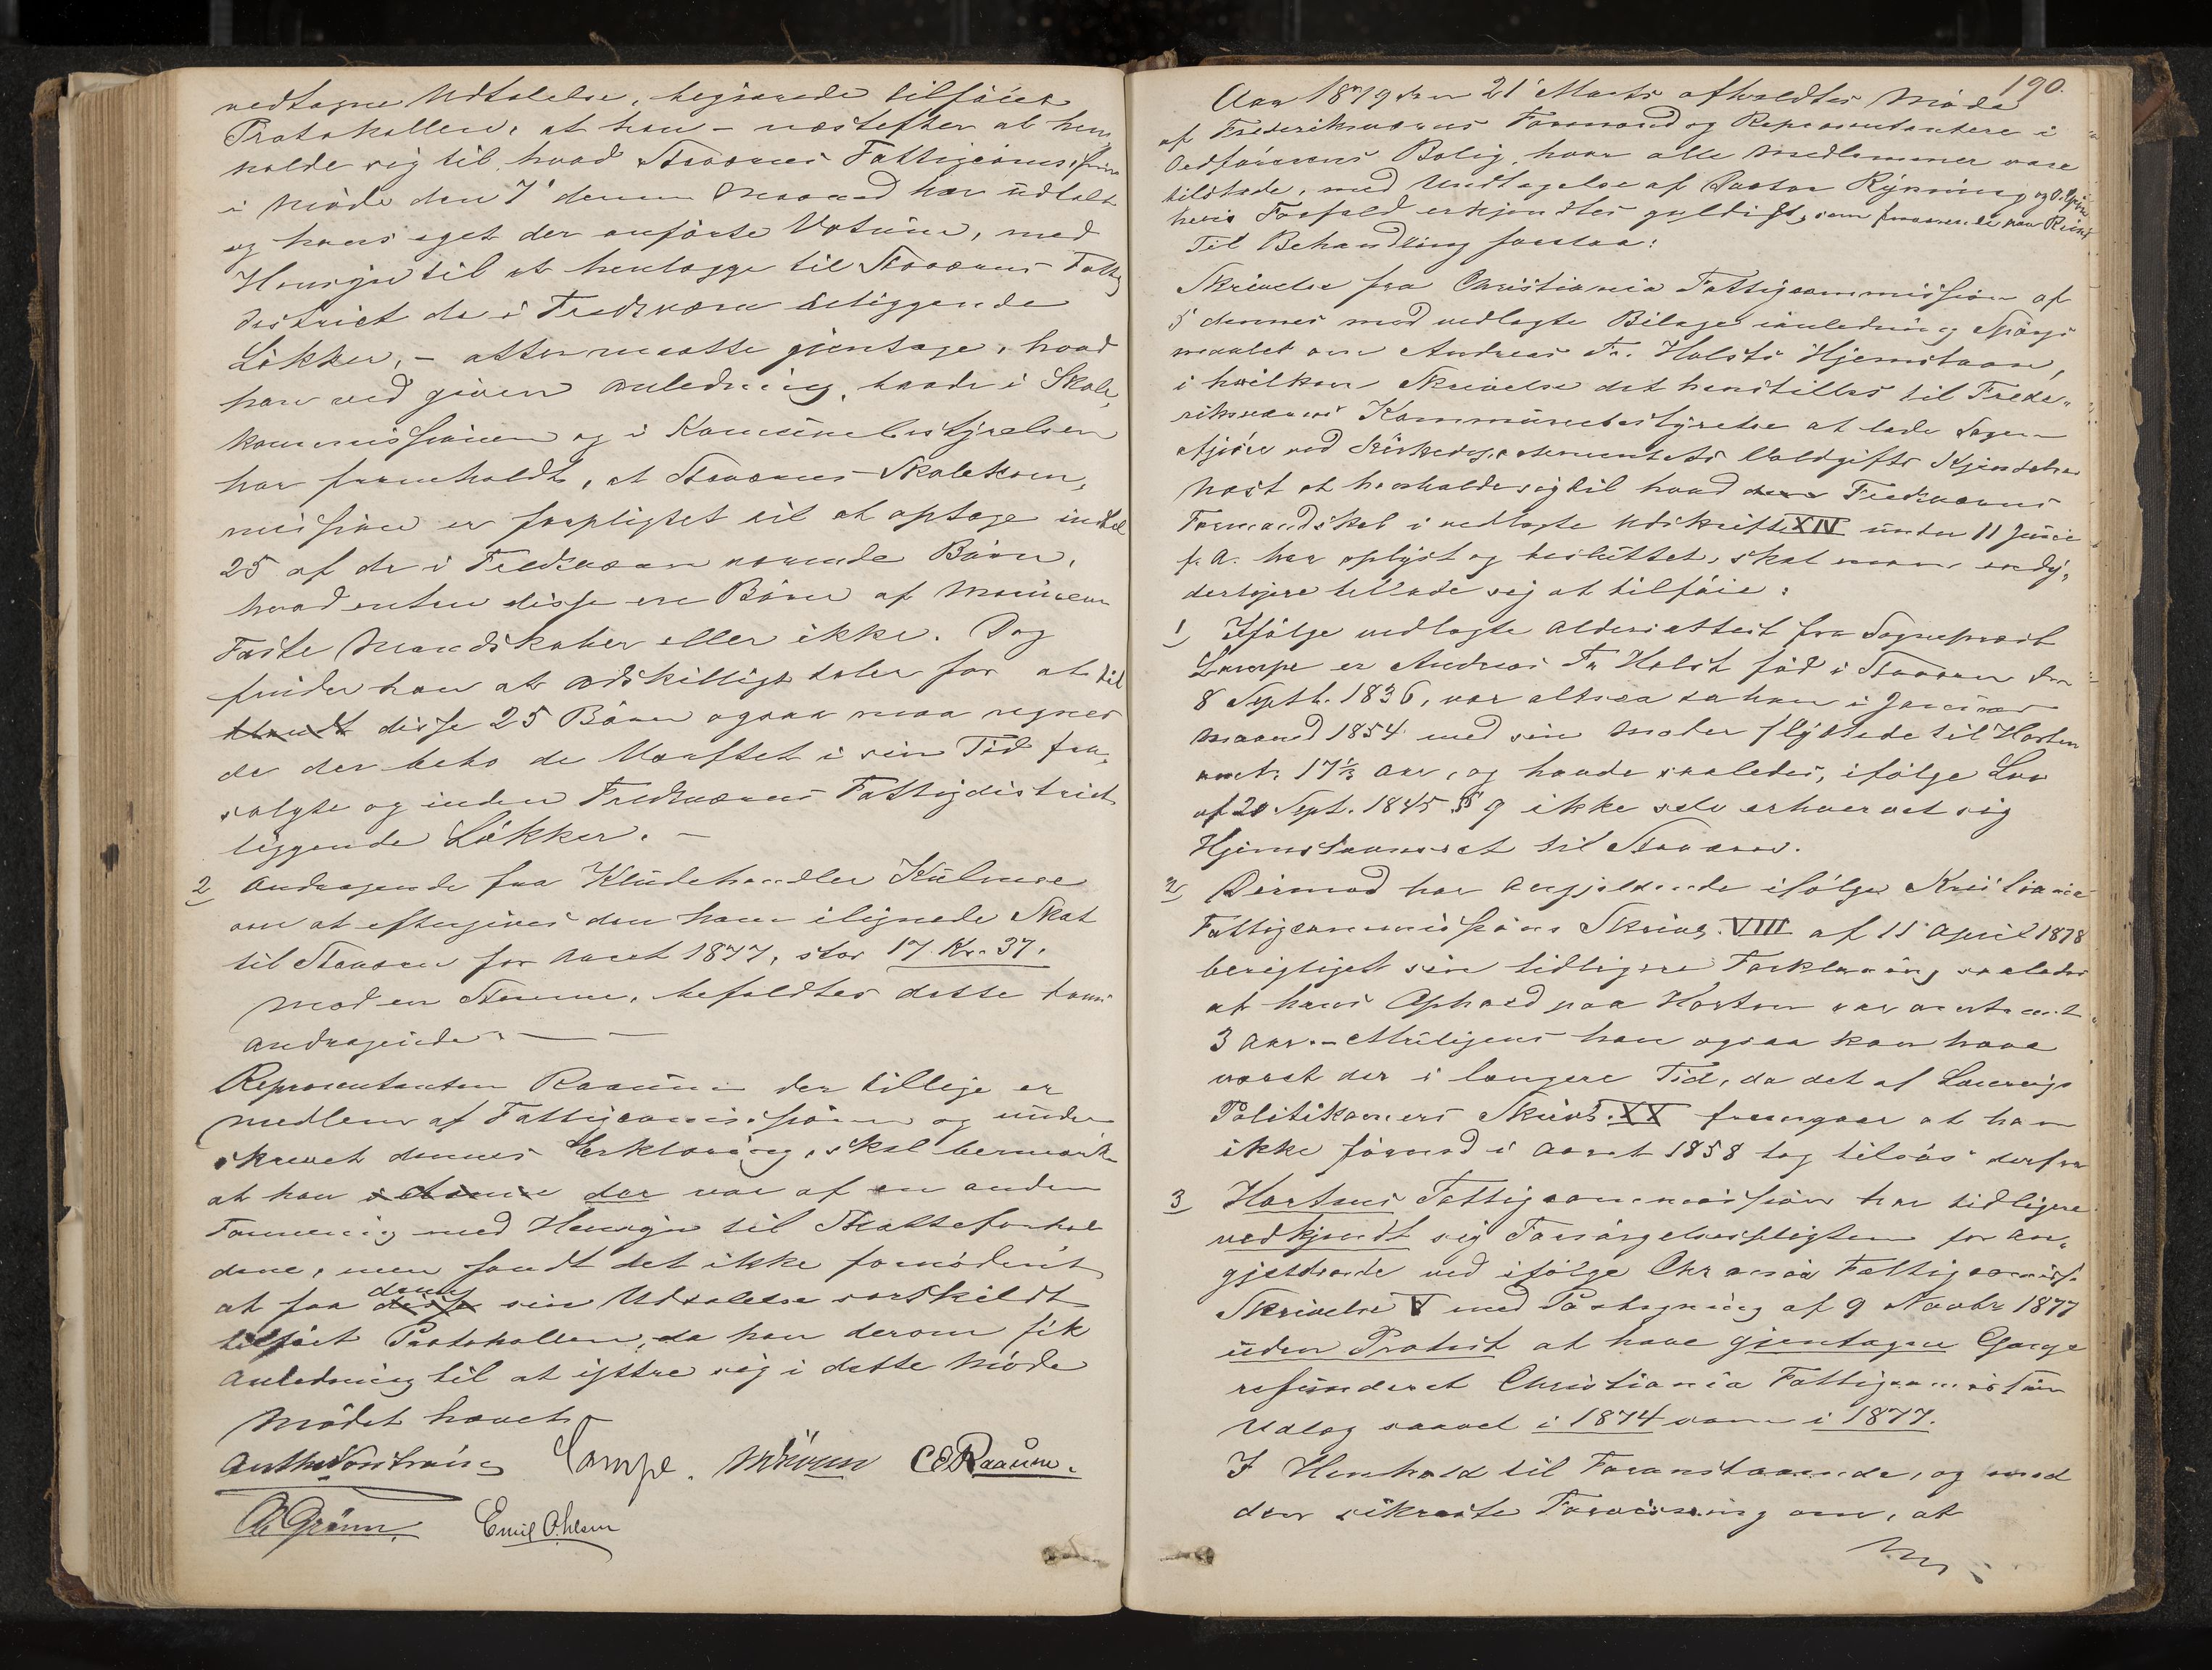 vedtagne Udtalelse, begjærede tilføiet
Protokollen, at han – næstefter at hen
holde sig til hvad Staværns Fattigcomission
i Møde den 7' dennes Maaned har udtalt
og hans eget der anførte Votum, med
Hensyn til at henlægge til Staværns Fattig
district de i Fredksværn beliggende
Løkker, – atter maatte gjentage, hvad
han ved given Anledning, baade i Skole,
kommissionen og i Kommunebestyrelsen
har fremholdt, at Staværns Skolekom,
mission er forpligtet til at optage indtil
25 af de i Fredksværn værende Børn,
hvad enten disse ere Børn af Marinens
Faste Mandskaber eller ikke. Dog
finder han at Adskilligt taler for at til
disse 25 Børn ogsaa maa regnes
de der bebo de Værftet i sin Tid fra,
solgte og inden Fredksværns Fattigdistrict
liggende Løkker. –
2 Andragende fra Kludehandler Kulmee
om at eftergives den ham ilignede Skat
til Stavern for Aaret 1877, stor 17 Kr. 37.
Mod en Stemme, befaldtes dette
Andragende. — —
Repræsentanten Raaum der tillige er
medlem af Fattigcomissionen og under
skrevet dennes Erklæring, skal bemærke
at han der var af en anden
Formening med Hensyn til Skatteforhol
dene, men fandt det ikke fornødent
at faa denne sin Udtalelse særskildt
tilført Protokollen, da han derom fik
Anledning til at yttre sig i dette Møde
Mødet hævet.
Lampe. CERaaum.
Grønn Emil Ohlsen
190.
Aar 1879 den 21' Marts afholdtes Møde
af Frederiksværns Formænd og Repræsentantere i
Ordførerens Bolig, hvor alle Medlemmer vare
tilstede, med Undtagelse af Pastor Rynning og
hvis Forfald erkjendtes gyldigt,
Til Behandling forelaa:
Skrivelse fra Christiania Fattigcommission af
5' dennes med vedlagte Bilage i anledning Spørgs
maalet om Andreas Fr. Holsts Hjemstavn,
i hvilken Skrivelse det henstilles til Frede„
riksværns Kommunebestyrelse at lade Sagen
afgjøre ved Kirkedepartementets Voldgifts Kjendelse
Næst at henholde sig til hvad Fredksværns
Formandskab i vedlagte Udskrift XIV under 11 Juni
f. A. har oplyst og besluttet, skal man endy,
derligere tillade sig at tilføie:
1 Ifølge vedlagte Aldersattest fra Sogneprest
Lampe er Andreas Fr Holst fød i Stavern den
8 Septb. 1836, var altsaa da han i Januar
Maaned 1854 med sin Moder flyttede til Horten
17⅓ Aar, og havde saaledes, ifølge Lov
af 20 Sept. 1845 § 9 ikke selv erhvervet sig
Hjemstavnsret til Stavern.
2 Dernæst har Angjældende ifølge Kristiania
Fattigcommissions Skriv. VIII af 15 April 1878
berigtiget sin tidligere Forklaring saaledes
at hans Ophold paa Horten var omtrent
3 Aar. – Muligens han ogsaa kan have
været der i længere Tid, da det af Laurvigs
Politikamers Skriv. XX fremgaar at han
ikke førend i Aaret 1858 tog tilsøs derfra
3 Hortens Fattigcommission har tidligere
vedkjendt sig Forsørgelsespligten for An„
gjældende ved ifølge Chrania Fattigcomiss.
Skrivelse V med Paategning af 9 Novbr 1877
uden Protest at have gjentagne Gange
refunderet Christiania Fattigcomission
Udlæg saavel i 1874 som i 1877.
I Henhold til Foranstaaende, og med
den sikreste Forvisning om, at